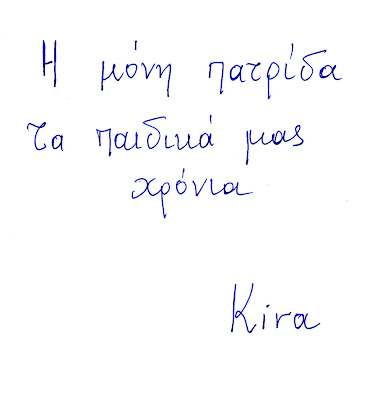 Η μόνη πατρίδα
τα παιδικά μας
χρόνια
Kira